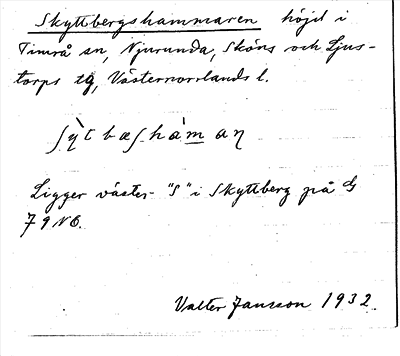 Skyttbergshammaren höjd i
Timrå sn, Njurunda, Sköns och Ljus-
torps tg, Västernorrlands l.
Ligger väster "S" i Skyttberg på G
79 NO.
Valter Jansson 1932